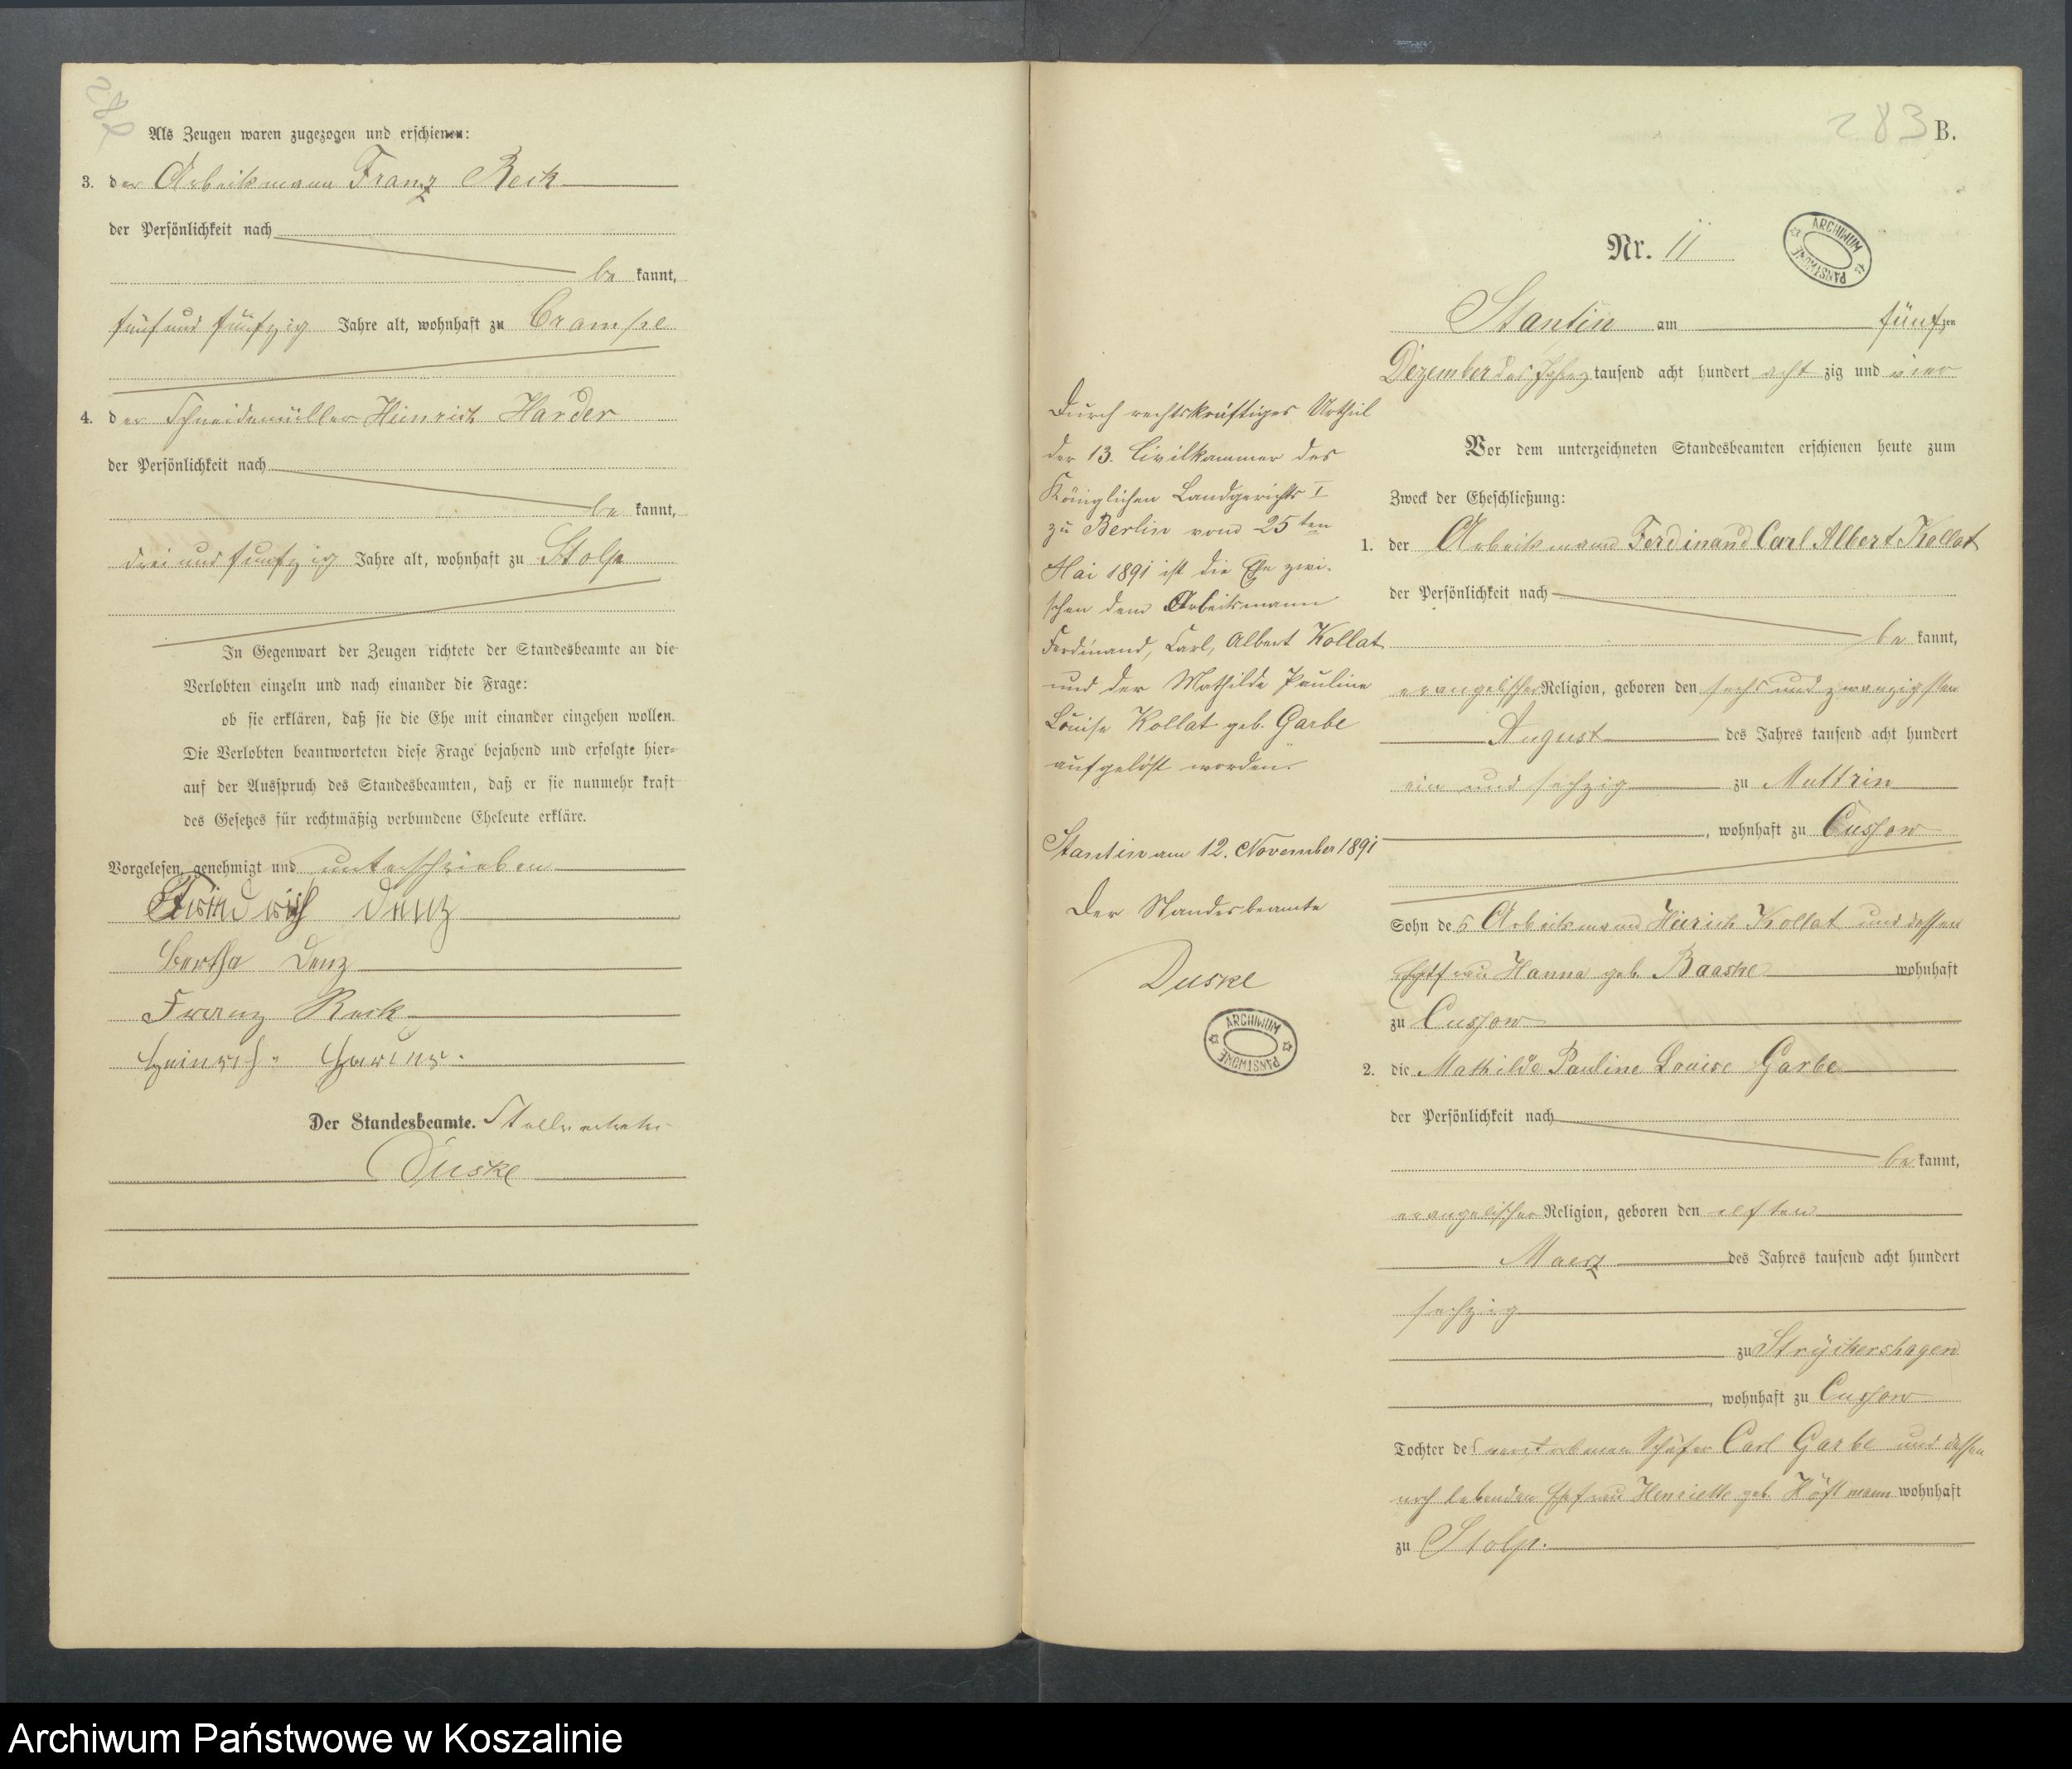 Als Zeugen waren zugezogen und erschienen:
3. der Arbeitsmann Franz Reck
der Persönlichkeit nach
be kannt,
fünf und fünfzig Jahre alt, wohnhaft zu Crampe
4. der Schneidemüller Heinrich Harder
der Persönlichkeit nach
be kannt,
drei und funfzig Jahre alt, wohnhaft zu Stolp
In Gegenwart der Zeugen richtete der Standesbeamte an die
Verlobten einzeln und nach einander die Frage:
ob sie erklären, daß sie die Ehe mit einander eingehen wollen.
Die Verlobten beantworteten diese Frage bejahend und erfolgte hier-
auf der Ausspruch des Standesbeamten, daß er sie nunmehr kraft
des Gesetzes für rechtmäßig verbundene Eheleute erkläre.
Vorgelesen, genehmigt und unterschrieben
Friedrich Denz
Bertha Denz
Franz Reck
Heinrich Harder.
Der Standesbeamte. Stellvertreter
Duske
283 B.
Nr. 11
ARCHIWUM PAŃSTWOWE
Stantin am fünfzen
Dezember des Jahres tausend acht hundert acht zig und vier
Vor dem unterzeichneten Standesbeamten erschienen heute zum
Zweck der Eheschließung:
1. der Arbeitsmann Ferdinand Carl Albert Kollat
der Persönlichkeit nach
be kannt,
evangelischer Religion, geboren den sechs und zwanzigsten
August des Jahres tausend acht hundert
ein und sechzig zu Muttrin
, wohnhaft zu Cussow
Sohn des Arbeitsmann Heinrich Kollat und dessen
Ehefrau Hanna geb. Baaske wohnhaft
zu Cussow
2. die Mathilde Pauline Louise Garbe
der Persönlichkeit nach
be kannt,
evangelischer Religion, geboren den elften
Maerz des Jahres tausend acht hundert
sechzig
zu Stryckershagen
, wohnhaft zu Cussow
Tochter des verstorbenen Schäfer Carl Garbe und dessen
noch lebenden Ehefrau Henriette geb. Höftmann wohnhaft
zu Stolp.
Durch rechtskräftiges Urtheil
der 13. Civilkammer des
Königlichen Landgerichts I
zu Berlin vom 25ten
Mai 1891 ist die Ehe zwi-
schen dem Arbeitsmann
Ferdinand, Carl, Albert Kollat
und der Mathilde Pauline
Louise Kollat geb. Garbe
aufgelöst worden.
Stantin am 12. November 1891
Der Standesbeamte
Duske
ARCHIWUM PAŃSTWOWE
Archiwum Państwowe w Koszalinie